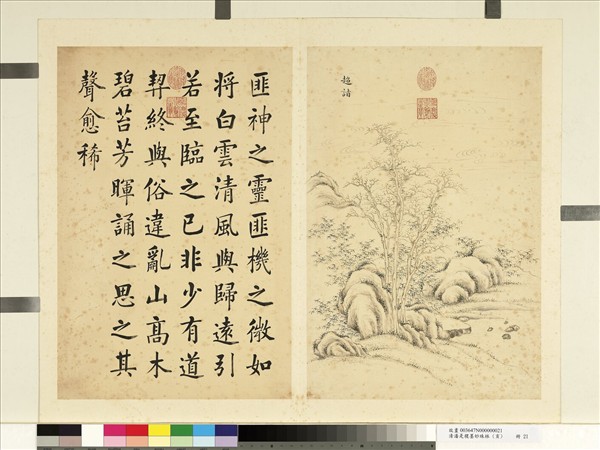 超詣
匪神之靈匪機之微如
将白雲清風與歸遠引
若至臨之已非少有道
契終與俗違亂山髙木
碧苔芳暉誦之思之其
聲愈稀
故畫 003647N000000021
清潘是稷墨妙珠林（亥） 冊 21